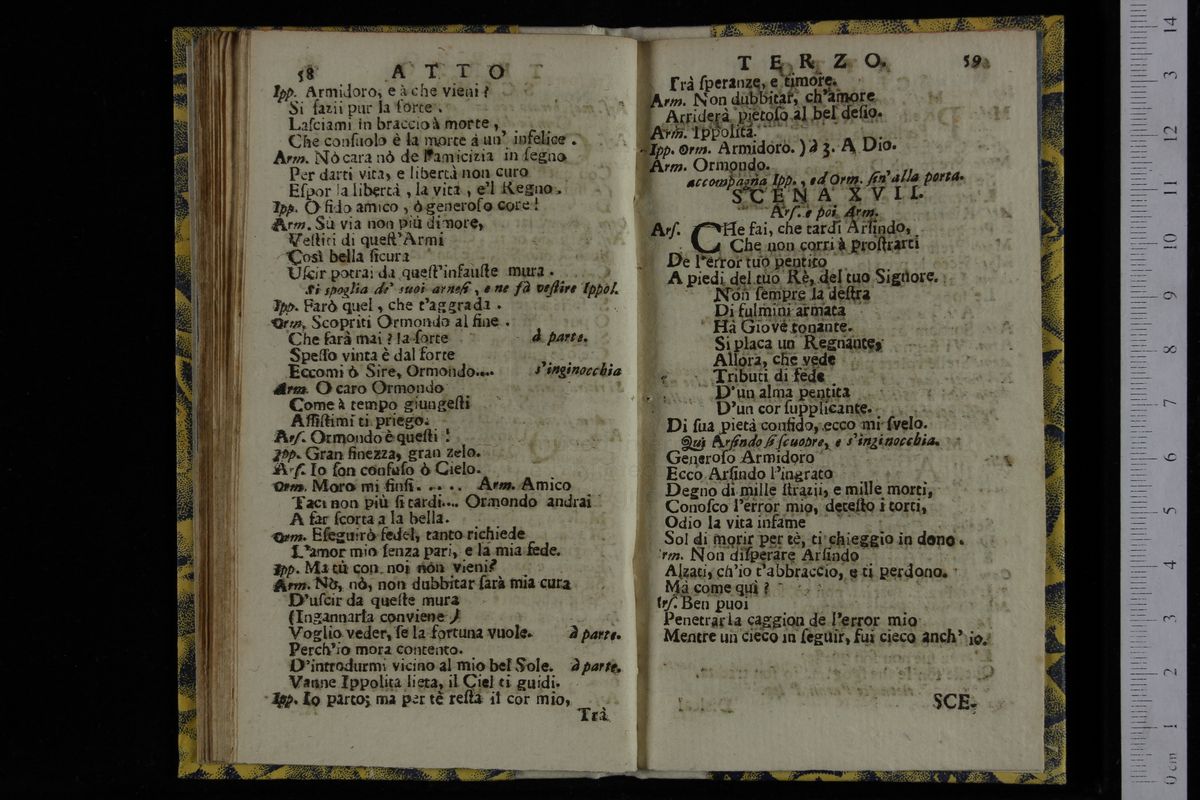 58 ATTO
Ipp. Armidoro, e à che vieni?
Si sazii pur la sorte.
Lasciami in braccio à morte,
Che consuolo è la morte à un' infelice.
Arm. Nò cara nò de l'amicizia in segno
Per darti vita, e libertà non curo
Espor la libertà, la vita, e'l Regno.
Ipp. O fido amico, ò generoso core!
Arm. Sù via non più dimore,
Vestiti di quest'Armi
Così bella sicura
Uscir potrai da quest'infauste mura.
Si spoglia de' suoi arnesi, e ne fà vestire Ippol.
Ipp. Farò quel, che t'aggrada.
Orm. Scopriti Ormondo al fine.
Che farà mai? la sorte à parte.
Spesso vinta è dal forte
Eccomi ò Sire, Ormondo.... s'inginocchia
Arm. O caro Ormondo
Come à tempo giungesti
Assistimi ti priego.
Ars. Ormondo è questi!
Ipp. Gran finezza, gran zelo.
Ars. Io son confuso ò Cielo.
Orm. Moro mi finsi..... Arm. Amico
Taci non più si tardi.... Ormondo andrai
A far scorta a la bella.
Orm. Eseguirò fedel, tanto richiede
L'amor mio senza pari, e la mia fede.
Ipp. Ma tù con noi non vieni?
Arm. Nò, nò, non dubbitar sarà mia cura
D'uscir da queste mura
(Ingannarla conviene)
Voglio veder, se la fortuna vuole. à parte.
Perch'io mora contento.
D'introdurmi vicino al mio bel Sole. à parte.
Vanne Ippolita lieta, il Ciel ti guidi.
Ipp. Io parto; ma per tè resta il cor mio,
Trà
TERZO. 59
Trà speranze, e timore.
Arm. Non dubbitar, ch'amore
Arriderà pietoso al bel desio.
Arm. Ippolita.
Ipp. Orm. Armidoro. ) à 3. A Dio.
Arm. Ormondo.
accompagna Ipp., ed Orm. sin'alla porta.
SCENA XVII.
Ars. e poi Arm.
Ars. CHe fai, che tardi Arsindo,
Che non corri à prostrarti
De l'error tuo pentito
A piedi del tuo Rè, del tuo Signore.
Non sempre la destra
Di fulmini armata
Hà Giove tonante.
Si placa un Regnante,
Allora, che vede
Tributi di fede
D'un alma pentita
D'un cor supplicante.
Di sua pietà confido, ecco mi svelo.
Qui Arsindo si scuopre, e s'inginocchia.
Generoso Armidoro
Ecco Arsindo l'ingrato
Degno di mille strazii, e mille morti,
Conosco l'error mio, detesto i torti,
Odio la vita infame
Sol di morir per tè, ti chieggio in dono.
rm. Non disperare Arsindo
Alzati, ch'io t'abbraccio, e ti perdono.
Mà come qui?
Ars. Ben puoi
Penetrar la caggion de l'error mio
Mentre un cieco in seguir, fui cieco anch' io.
SCE-
0 cm 1 2 3 4 5 6 7 8 9 10 11 12 13 14